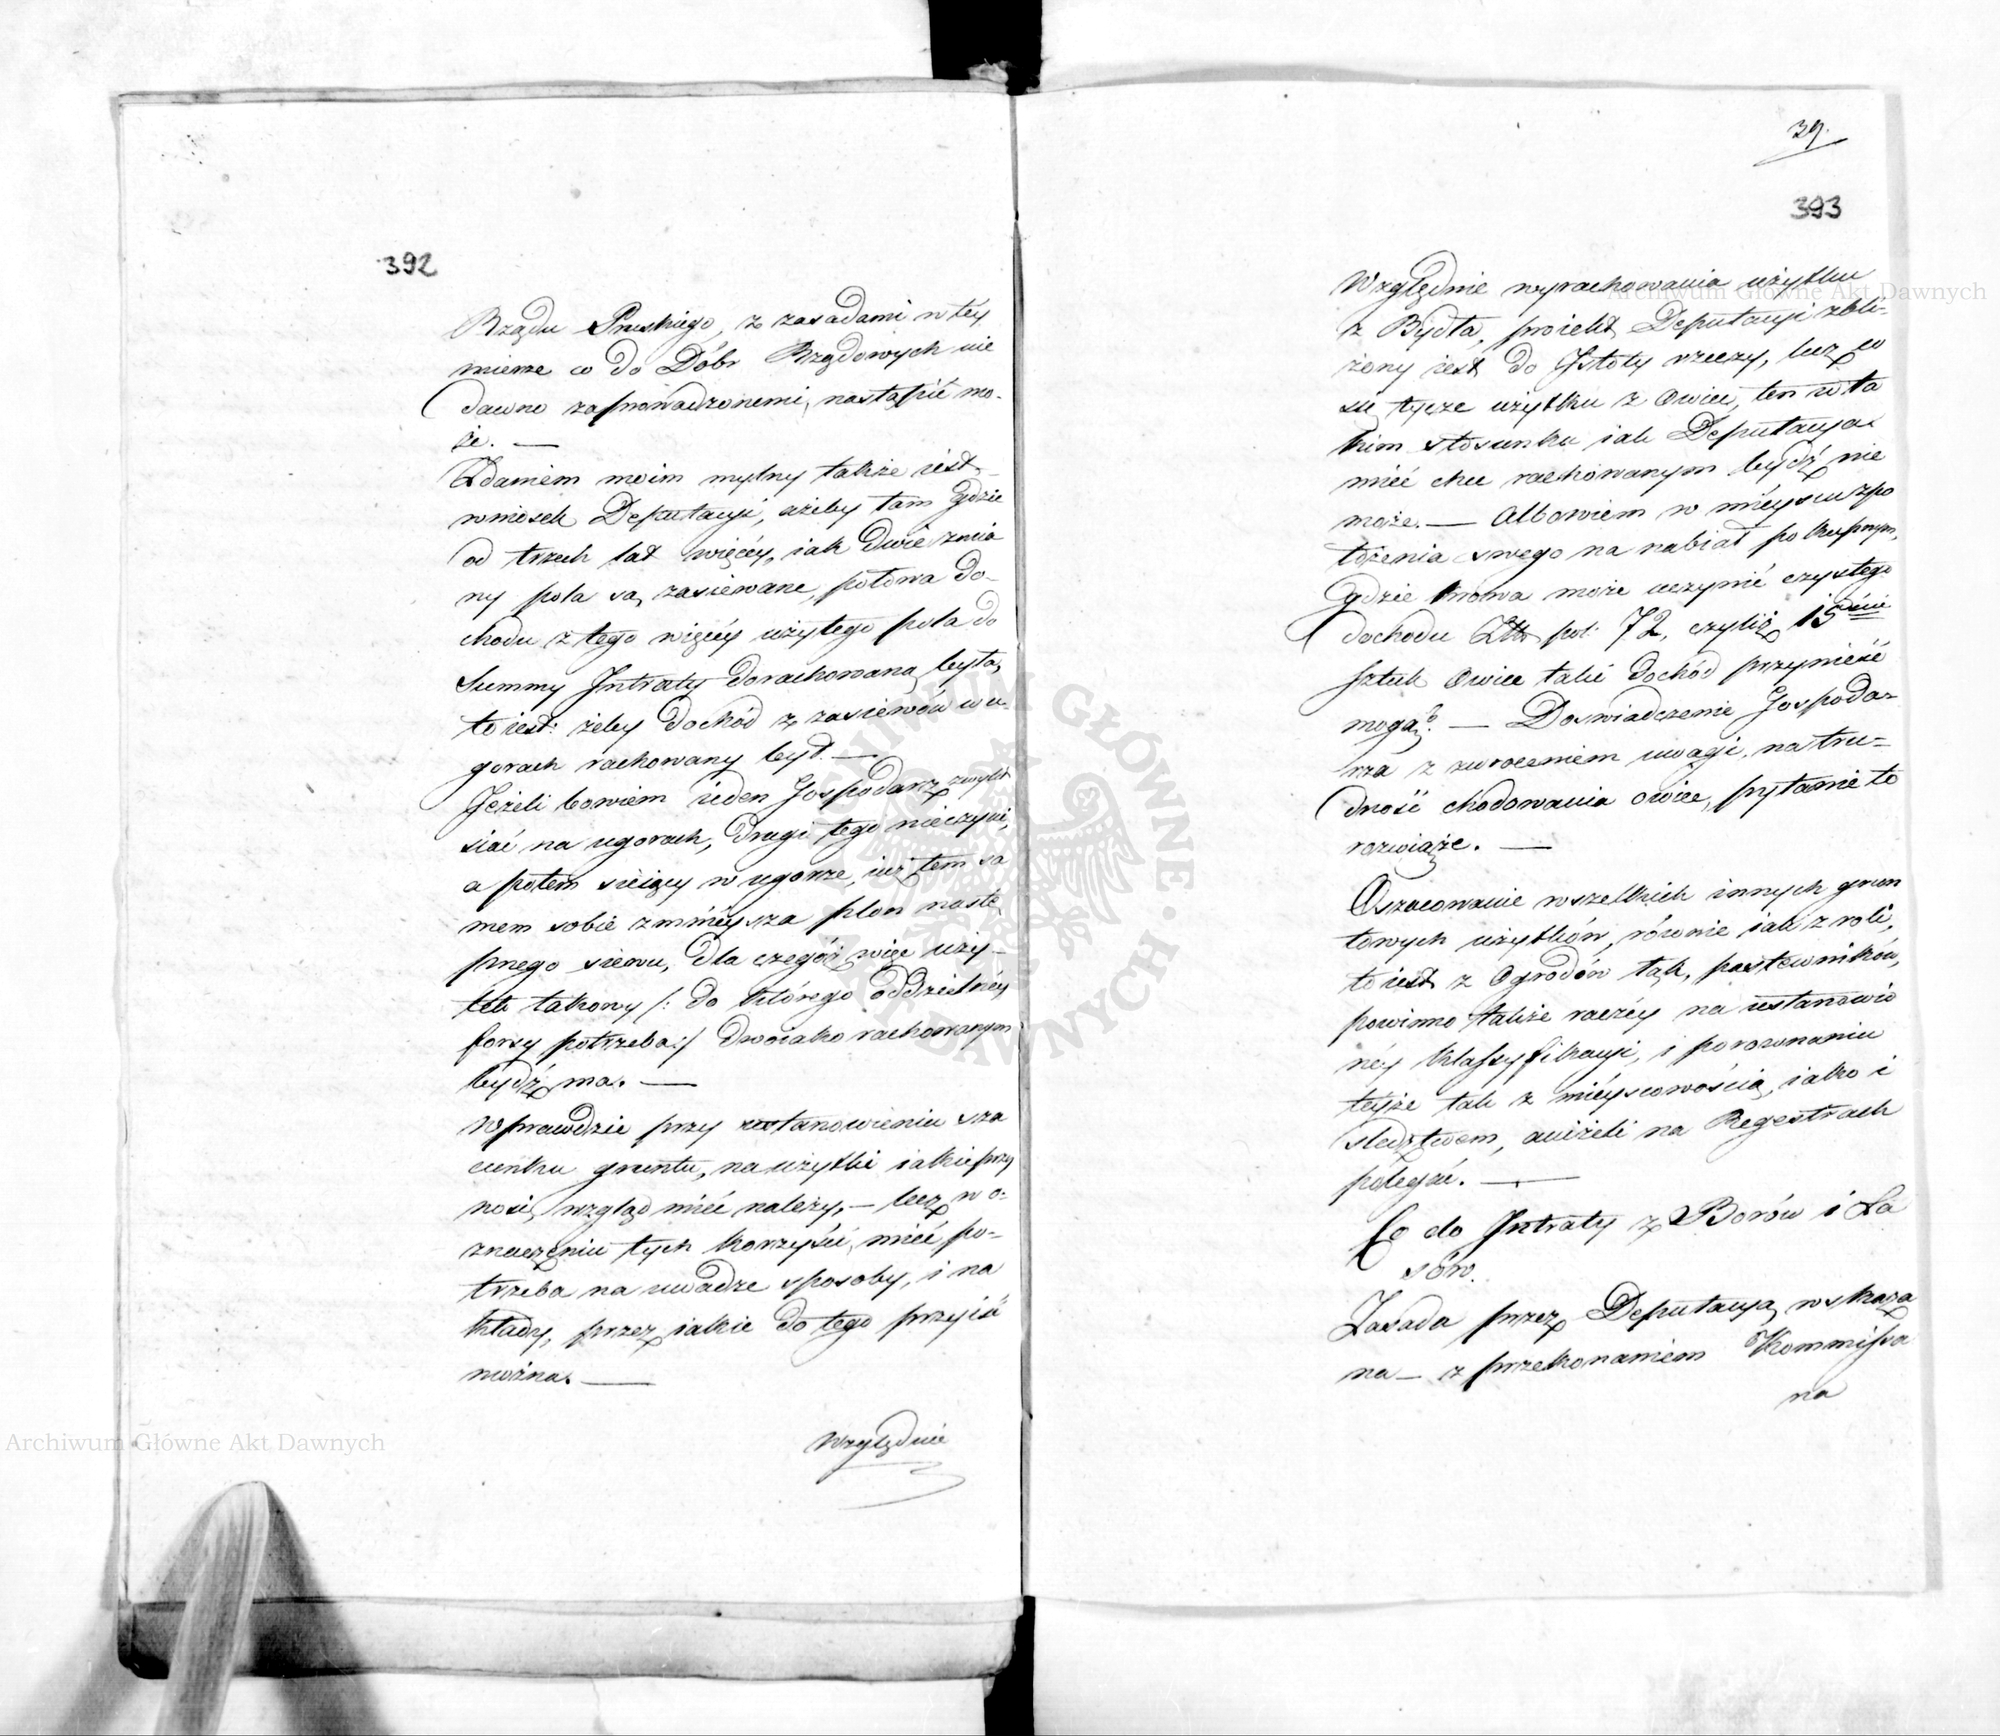 392
Rządu Pruskiego, z zasadami w téy
mierze co do Dóbr Rządowych nie
dawno zaprowadzonemi, nastąpić mo-
że. —
Zdaniem moim mylny także iest
wniosek Deputacyi, ażeby tam gdzie
od trzech lat więcéy, iak dwie zmia
ny pola są zasiewane, połowa do-
chodu z tego więcéy użytego pola do
Summy Intraty dorachowaną była,
to iest: żeby dochód z zasiewów w u-
gorach rachowany był. —
Jeżeli bowiem ieden Gospodarz zwykł
siać na ugorach, drugi tego nieczyni,
a potem sieiący w ugorze, iuż tem sa
mem sobie zmnieysza plon nastę
pnego siewu, dla czegóż więc uży-
tek takowy /: do którego oddzielnéy
forsy potrzeba :/ dwoiako rachowanym
bydź ma. —
Wprawdzie przy ustanowieniu sza
cunku gruntu, na użytki iakie przy
nosi, wzgląd mieć należy, — lecz w o-
znaczeniu tych korzyści, mieć po-
trzeba na uwadze sposoby, i na
kłady, przez iakie do tego przyiść
można. —
Względnie
39.
393
Względnie wyrachowania użytku
z Bydła, proiekt Deputacyi zbli-
żony iest do Istoty rzeczy, lecz co
się tycze użytku z Owiec, ten w ta
kim stosunku iak Deputacya
mieć chce rachowanym bydź nie
może. — Albowiem w mieyscu zpo
łożenia swego na nabiał pokupnym,
gdzie krowa może uczynić czystego
dochodu Złł. pol: 72, czyliż 15ście
sztuk Owiec taki dochód przynieść
mogą? — Doswiadczenie Gospoda-
rza z zwróceniem uwagi, na tru-
dność chodowania owiec, pytanie to
rozwiąże. —
Oszacowanie wszelkich innych grun
towych użytków, równie iak z roli,
to iest z Ogrodów łąk, pastewników,
powinno także raczéy na ustanowio
néy klassyfikacyi, i porownaniu
teyże tak z mieyscowością, iako i
sledztwem, aniżeli na Regestrach
polegać. —
Co do Intraty z Borów i La
sów.
Zasada przez Deputacyą wskaza
na — z przekonaniem Kommissa
na